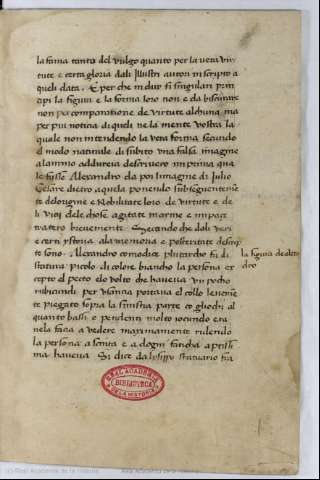 la fama tanto del vulgo quanto per la vera vir
tute e certa gloria dali Illustri autori in scripto a
queli data. E per che in duo si singulari prin
cipi la figura e la forma loro non e da biscurare
non per comparatione de virtute alchuna ma
per piu noticia di queli ne la mente vostra la
quale non intendendo la vera forma secundo
el modo naturale di subito una falsa imagine
a lanimo addureia descrivero in prima qua
le fusse Alexandro da poi limagine di Iulio
Cesare dietro aquela ponendo subsequenteme
te delorigine e Nobilitate loro de virtute e de
li Vicij dele chose agitate
tratero brievemente Secundo che dali veri
e certi ystoria ala memoria e posteritate descrip
te sono. Alexandro como dice plutarcho fu di
statura picolo di colore biancho la persona ex
cepto el pecto e lo volto che haveva un pocho
rubicundi per usanza portava el collo lenem
te piegato sopra la sinistra parte co gliochi al
quanto bassi e pendenti molto iocundo era
nela facia a vedere maximamente rulendo
la persona asciuta e a dogni faticha aptissi
ma haveva Si dice da lysippo statuario fu
la figura de alexan
dro
REAL ACADEMIA
BIBLIOTECA
DE LA HISTORIA
(c) Real Academia de la Historia